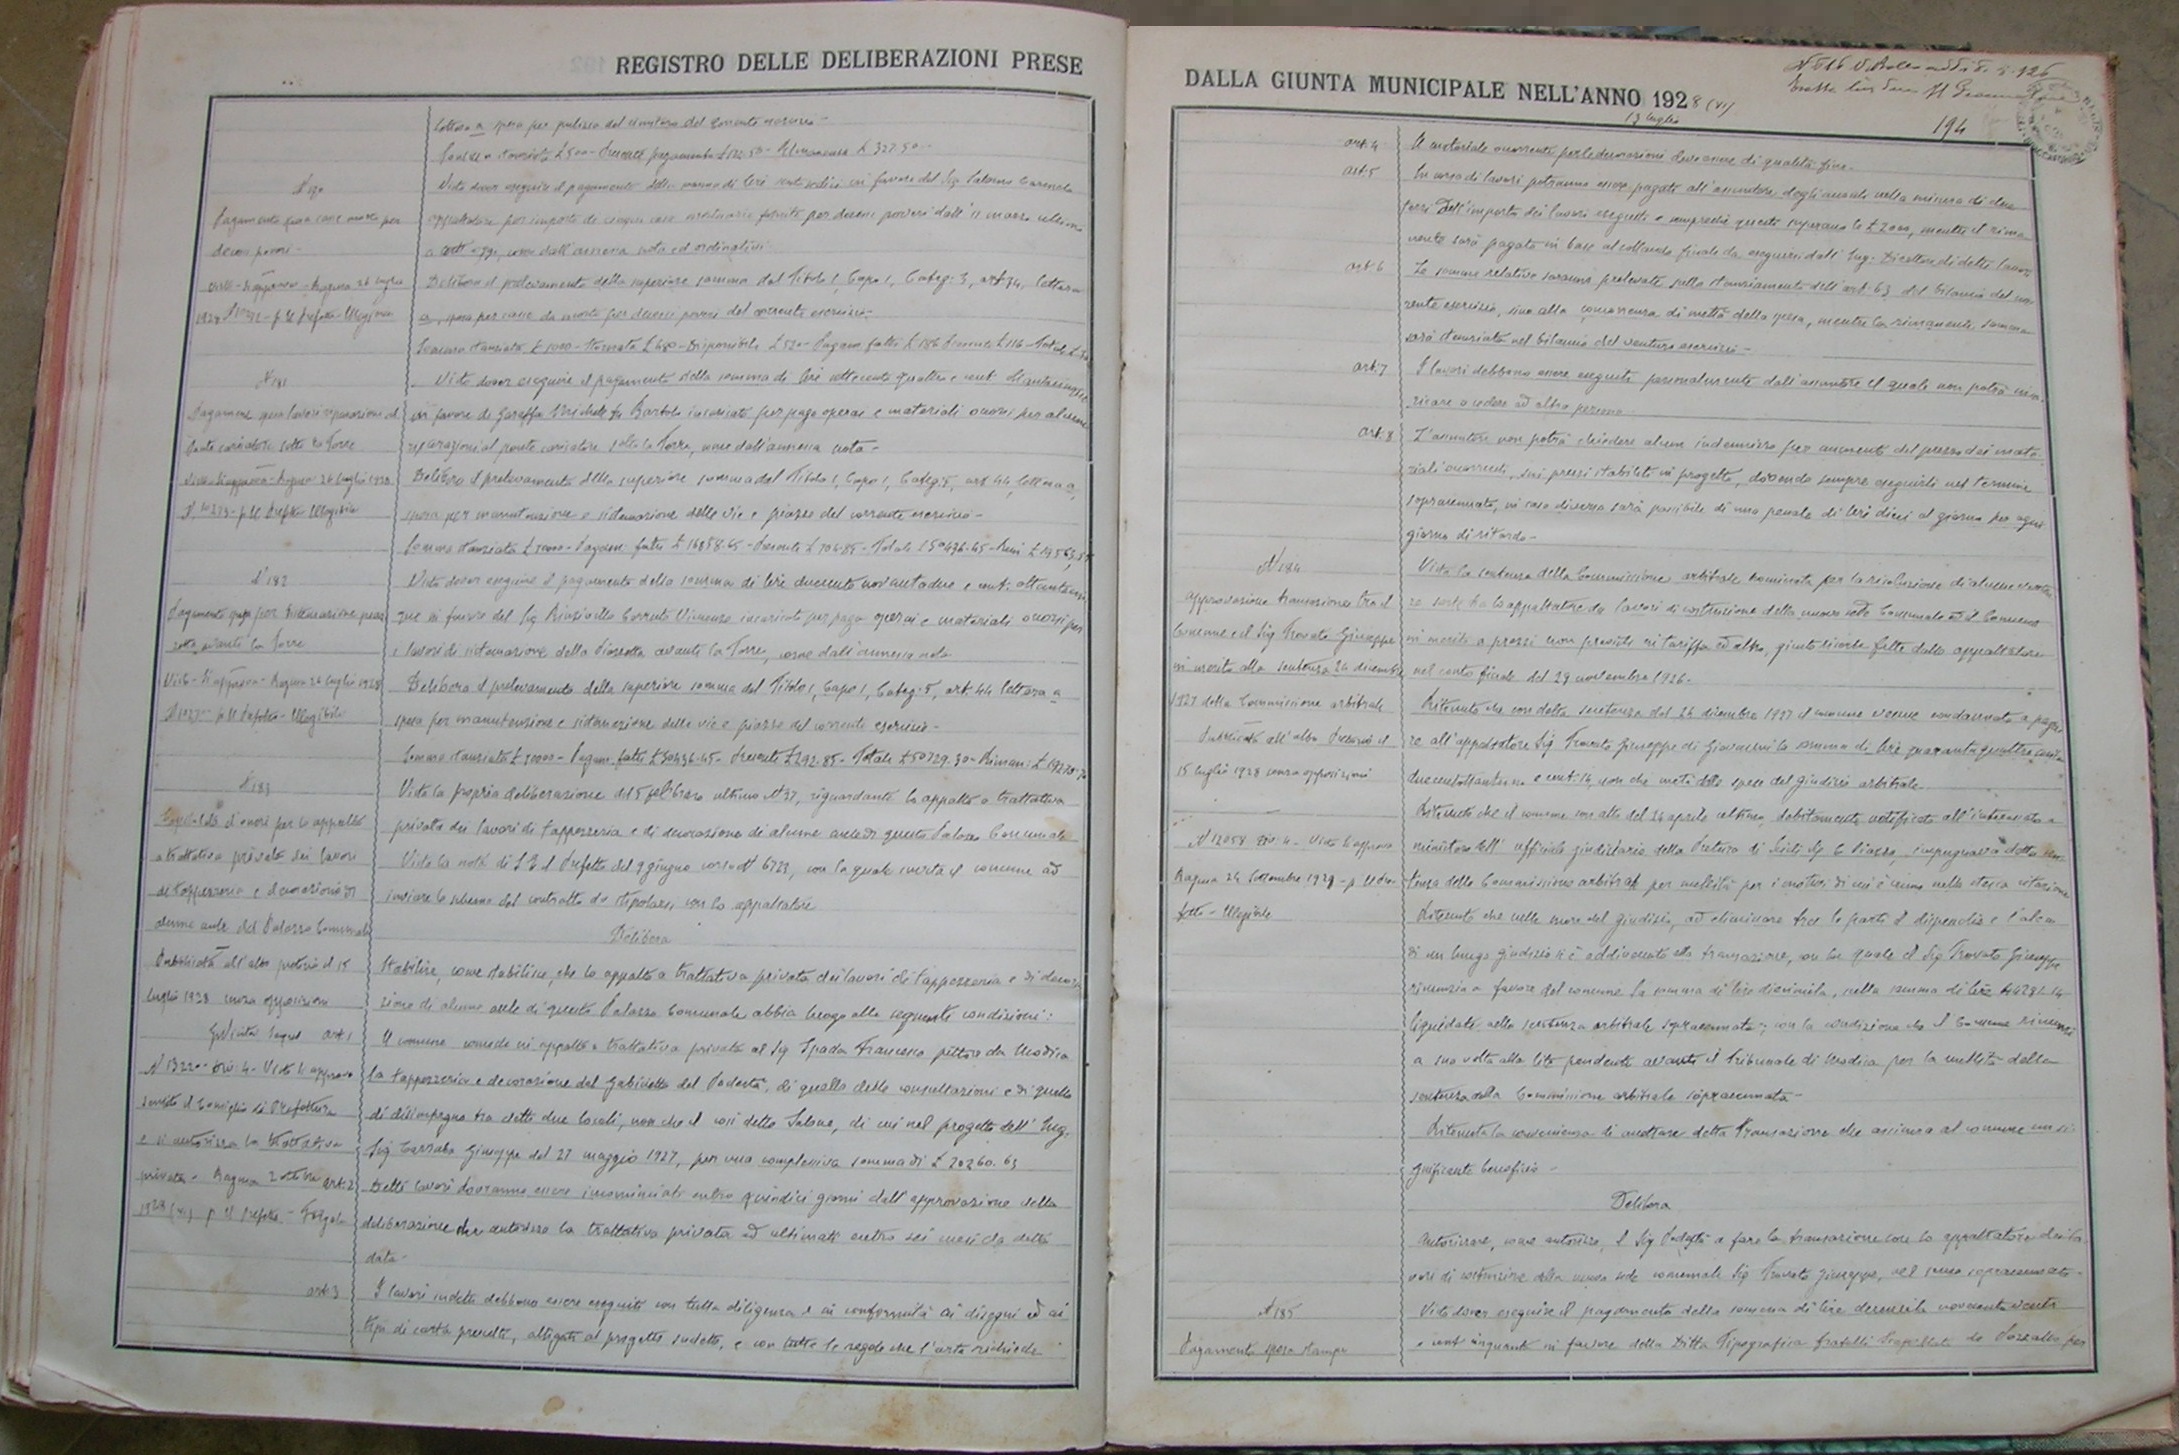 REGISTRO DELLE DELIBERAZIONI PRESE
lettera a spesa per pulizia del cimitero del corrente esercizio -
N 180
Visto dover eseguire il pagamento della somma di lire in favore del Sig.
Pagamento casse morto per
appaltatore per importo di cinque casse mortuarie fornite per decessi poveri dall'11 marzo ultimo
decessi poveri -
a oggi, come dall'annessa nota ed ordinativi
Visto - Si approva - Ragusa 26 luglio
Delibera il prelevamento della superiore somma dal Titolo I, Capo I, Categ. 3, art. 34, lettera
1928 p. Il Prefetto - Illegibile
a, spesa per casse da morto per decessi poveri del corrente esercizio -
Somma stanziata £ 1000 - Stornata £ 480 - Disponibile £ 520 - Pagam. fatti £ 186 Presente £ 116 - Totale £
N 181
Visto dover eseguire il pagamento della somma di lire settecento quattro e cent. ottantacinque
Pagamento lavori riparazioni al
in favore di Garaffa Michele fu Bartolo incaricato per paga operai e materiali occorsi per alcune
Ponte caricatore sotto la Torre
riparazioni al ponte caricatore sotto la Torre, come dall'annessa nota -
Visto - Si approva - Ragusa 26 luglio 1928
Delibera il prelevamento della superiore somma dal Titolo I, Capo I, Categ. 5, art. 44, lettera a,
p. Il Prefetto Illegibile
spesa per manutenzione e sistemazione delle vie e piazze del corrente esercizio -
N 182
Visto dover eseguire il pagamento della somma di lire duecento novantadue e cent. ottantacin
Pagamento per sistemazione piaz
que in favore del Sig. Vincenzo incaricato per paga operai e materiali occorsi per
zetta avanti la Torre
i lavori di sistemazione della Piazzetta avanti la Torre, come dall'annessa nota
Visto - Si approva - Ragusa 26 luglio 1928
Delibera il prelevamento della superiore somma dal Titolo I, Capo I, Categ. 5, art. 44 lettera a
p. Il Prefetto - Illegibile
spesa per manutenzione e sistemazione delle vie e piazze del corrente esercizio -
Somma stanziata £ 70000 - Pagam. fatti £ 50436.45 - Presente £ 292.85 - Totale £ 50729.30 - Riman. £ 19270.70
N 183
Vista la propria deliberazione del 5 febbraio ultimo N 37, riguardante lo appalto a trattativa
d'oneri per lo appalto
privata dei lavori di tappezzeria e di decorazione di alcune aule di questo Palazzo Comunale
a trattativa privata dei lavori
Vista la nota di S. E. il Prefetto del 9 giugno corso N 6723, con la quale invita il comune ad
di tappezzeria e decorazione di
inviare lo schema del contratto da stipularsi con lo appaltatore
alcune aule del Palazzo Comunale
Delibera
Pubblicata all'albo pretorio il 15
Stabilire, come stabilisce, che lo appalto a trattativa privata dei lavori di tappezzeria e di decora
luglio 1928 senza opposizioni
zione di alcune aule di questo Palazzo Comunale abbia luogo alle seguenti condizioni:
art. 1
Il comune concede in appalto a trattativa privata al Sig. Spada Francesco pittore da Modica
N 13220 - Div. 4 - Visto si approva
la tappezzeria e decorazione del Gabinetto del Podestà, di quello delle consultazioni e di quello
sentito il Consiglio di Prefettura
di disimpegno tra detti due locali, non che il così detto Salone, di cui nel progetto dell'Ing.
e si autorizza la trattativa
Sig. Giuseppe del 27 maggio 1927, per una complessiva somma di £ 20260.63
privata - Ragusa 2 ottobre
art. 2
Detti lavori dovranno essere incominciati entro quindici giorni dall'approvazione della
1928 (VI) p. Il Prefetto -
deliberazione che autorizza la trattativa privata ed ultimati entro sei mesi da detta
data -
art. 3
I lavori suddetti debbono essere eseguiti con tutta diligenza e in conformità ai disegni ed ai
tipi di carta prescelti, allegati al progetto suddetto, e con tutte le regole che l'arte richiede
DALLA GIUNTA MUNICIPALE NELL'ANNO 1928 (VI)
13 luglio
194
art. 4
Il materiale occorrente per le decorazioni deve essere di qualità fine -
art. 5
In corso di lavori potranno essere pagati all'assuntore degli acconti nella misura di due
terzi dell'importo dei lavori eseguiti e sempreché questi superano le £ 2000, mentre il rima
nente sarà pagato in base al collaudo finale da eseguirsi dall'Ing. Direttore di detti lavori
art. 6
Le somme relative saranno prelevate sullo stanziamento dell'art. 63 del bilancio del cor
rente esercizio, sino alla concorrenza di metà della spesa, mentre la rimanente somma
sarà stanziata nel bilancio del venturo esercizio -
art. 7
I lavori debbono essere eseguiti personalmente dall'assuntore il quale non potrà inca
ricare o cedere ad altra persona
art. 8
L'assuntore non potrà chiedere alcun indennizzo per aumenti del prezzo dei mate
riali occorrenti, sui prezzi stabiliti in progetto, dovendo sempre eseguirli nel termine
sopracennato, in caso diverso sarà passibile di una penale di lire dieci al giorno per ogni
giorno di ritardo -
N 184
Vista la sentenza della Commissione arbitrale nominata per la risoluzione di alcune verten
approvazione transazione tra il
ze sorte tra lo appaltatore dei lavori di costruzione della nuova sede Comunale ed il Comune
Comune ed il Sig. Trovato Giuseppe
in merito a prezzi non previsti in tariffa ed altro, giuste riserve fatte dallo appaltatore
in merito alla sentenza 26 dicembre
nel conto finale del 29 novembre 1926 -
1927 della Commissione arbitrale
Ritenuto che con detta sentenza del 26 dicembre 1927 il comune venne condannato a paga
Pubblicata all'albo Pretorio il
re all'appaltatore Sig. Trovato Giuseppe di Giovanni la somma di lire quarantaquattromila
15 luglio 1928 senza opposizioni
duecentottantuno e cent. 14, non che metà delle spese del giudizio arbitrale -
Ritenuto che il comune con atto del 26 aprile ultimo, debitamente notificato all'interessato a
N 12058 Div. 4 - Visto si approva
ministero dell'ufficiale giudiziario della Pretura di Scicli Sig. C. Piazza, impugnava detta sen
Ragusa 24 Settembre 1928 - p. Il Pre
tenza della Commissione arbitrale per nullità per i motivi di cui è cenno nella stessa citazione
fetto - Illegibile
Ritenuto che nelle more del giudizio, ad eliminare tra le parti il dispendio e l'alea
di un lungo giudizio si è addivenuto alla transazione, con la quale il Sig. Trovato Giuseppe
rinunzia a favore del comune la somma di lire diecimila, sulla somma di lire 44281.14
liquidate nella sentenza arbitrale sopracennata; con la condizione che il Comune rinunzi
a sua volta alla lite pendente avanti il Tribunale di Modica per la nullità della
sentenza della Commissione arbitrale sopracennata -
Ritenuta la convenienza di accettare detta transazione che assicura al comune un si
gnificante beneficio -
Delibera
Autorizzare, come autorizza, il Sig. Podestà a fare la transazione con lo appaltatore dei la
vori di costruzione della nuova sede comunale Sig. Trovato Giuseppe, nel senso sopracennato -
N 185
Visto dover eseguire il pagamento della somma di lire novecentoventi
Pagamento spesa stampe
e cent. cinquanta in favore della Ditta Tipografica fratelli da Pozzallo per